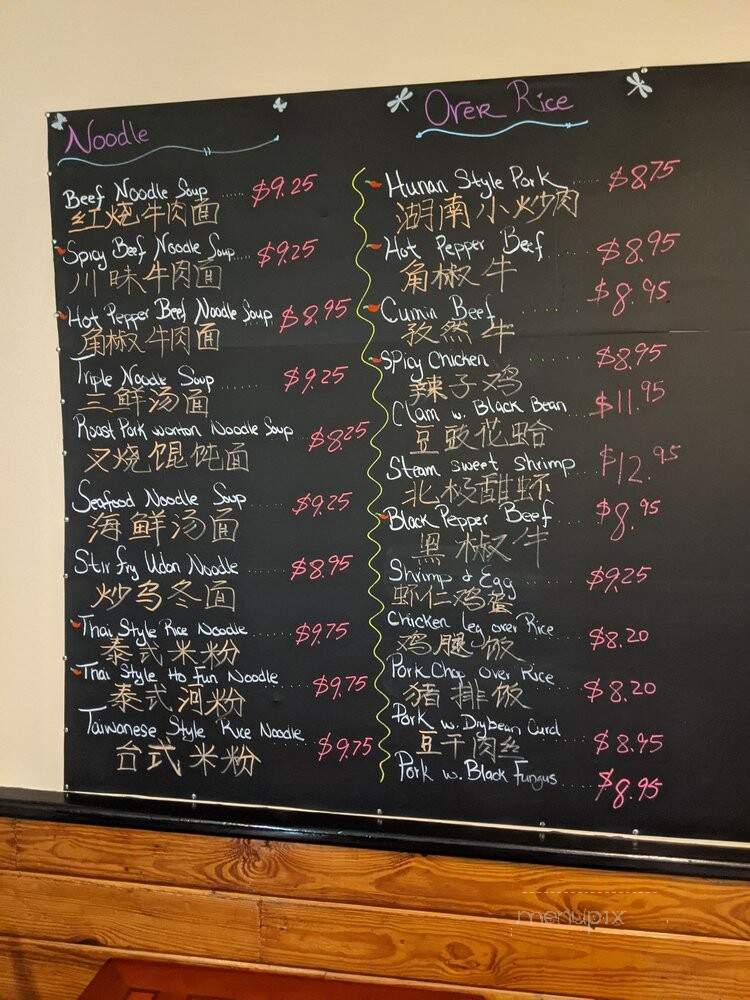 Noodle
Beef Noodle Soup ..... $9.25
红烧牛肉面
Spicy Beef Noodle Soup... $9.25
川味牛肉面
Hot Pepper Beef Noodle Soup. $8.95
角椒牛肉面
Triple Noodle Soup ...... $9.25
三鲜汤面
Roast Pork wonton Noodle Soup .. $8.25
叉烧馄饨面
Seafood Noodle Soup .... $9.25
海鲜汤面
Stir fry Udon Noodle ..... $8.95
炒乌冬面
Thai Style Rice Noodle ..... $9.75
泰式米粉
Thai Style Ho fun Noodle .... $9.75
泰式河粉
Taiwanese Style Rice Noodle .. $9.75
台式米粉
Over Rice
Hunan Style Pork ..... $8.75
湖南小炒肉
Hot Pepper Beef ...... $8.95
角椒牛
Cumin Beef ....... $8.95
孜然牛
Spicy Chicken ....... $8.95
辣子鸡
Clam w. Black Bean .... $11.95
豆豉花蛤
Steam sweet Shrimp ... $12.95
北极甜虾
Black Pepper Beef .... $8.95
黑椒牛
Shrimp & Egg ....... $9.25
虾仁鸡蛋
Chicken leg over Rice .... $8.20
鸡腿饭
Pork Chop Over Rice ... $8.20
猪排饭
Pork w. Dry Bean Curd .... $8.95
豆干肉丝
Pork w. Black Fungus .... $8.95
menupix